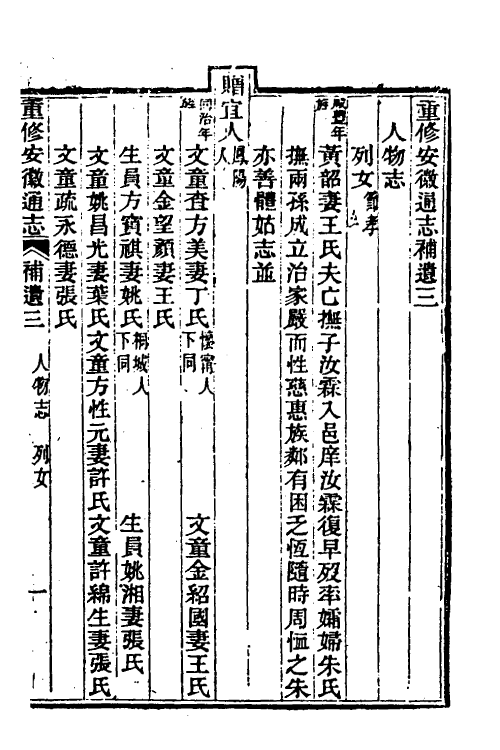 重修安徽通志補遺三
人物志
列女節孝三
咸豐年旌
黃韶妻王氏夫亡撫子汝霖入邑庠汝霖復早歿率孀婦朱氏
撫兩孫成立治家嚴而性慈惠族鄰有困乏恆隨時周恤之朱
亦善體姑志並
贈宜人鳳陽人
同治年旌
文童查方美妻丁氏懷甯人下同 文童金紹國妻王氏
文童金望顏妻王氏
生員方寶祺妻姚氏桐城人下同 生員姚湘妻張氏
文童姚昌光妻葉氏文童方性元妻許氏文童許綿生妻張氏
文童疏永德妻張氏
重修安徽通志 補遺三 人物志 列女 一